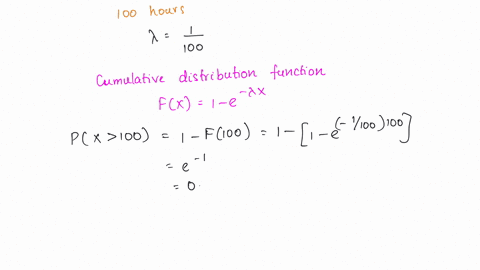 100 hours
λ = 1/100
Cumulative distribution function
F(x) = 1 - e^{-λx}
P(x > 100) = 1 - F(100) = 1 - [1 - e^{(-1/100)100}]
= e^{-1}
= 0.